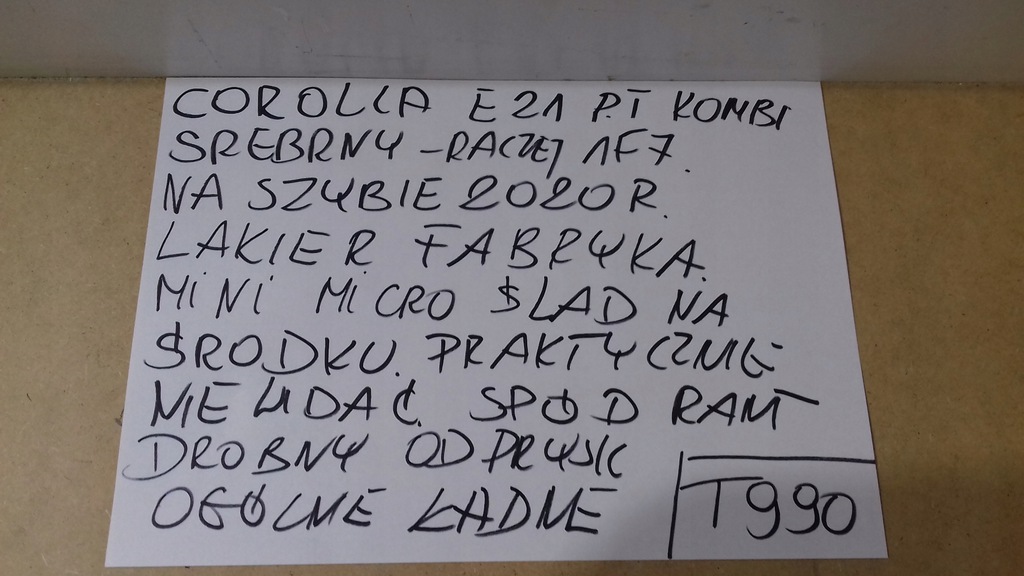 COROLLA E21 P.T KOMBI
SREBRNY - RACZEJ 1F7.
NA SZYBIE 2020R.
LAKIER FABRYKA.
MINI MICRO ŚLAD NA
ŚRODKU. PRAKTYCZNIE
NIE WIDAĆ. SPÓD RANT
DROBNY ODPRYSK
OGÓLNIE ŁADNE
T990